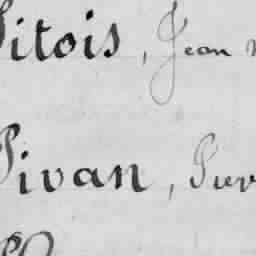 Pitois, Jean
Pivan, Pier